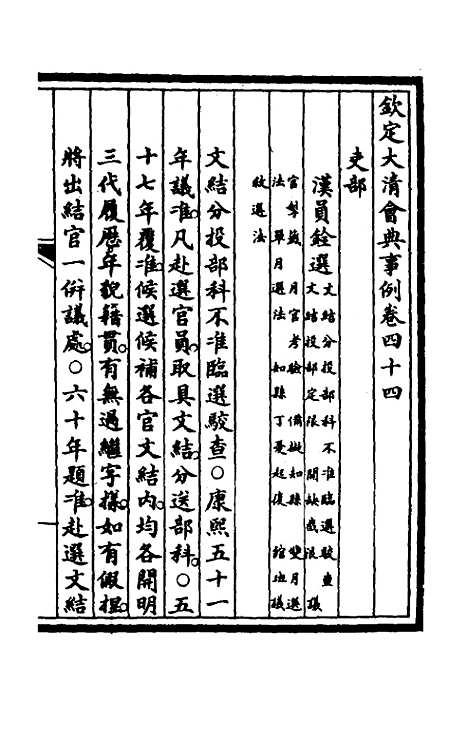 欽定大清會典事例卷四十四
吏部
漢員銓選
文結分投部科不准臨選駮查
文結投部定限 開缺截限 議
官掣籤 月官考驗 備擬知縣 雙月選
法 單月選法 知縣丁憂起復 館班議
敘選法
文結分投部科不准臨選駮查○康熙五十一
年議准凡赴選官員取具文結分送部科○五
十七年覆准候選候補各官文結內均各開明
三代履歷年貌籍貫有無過繼字樣如有假揑
將出結官一併議處○六十年題准赴選文結